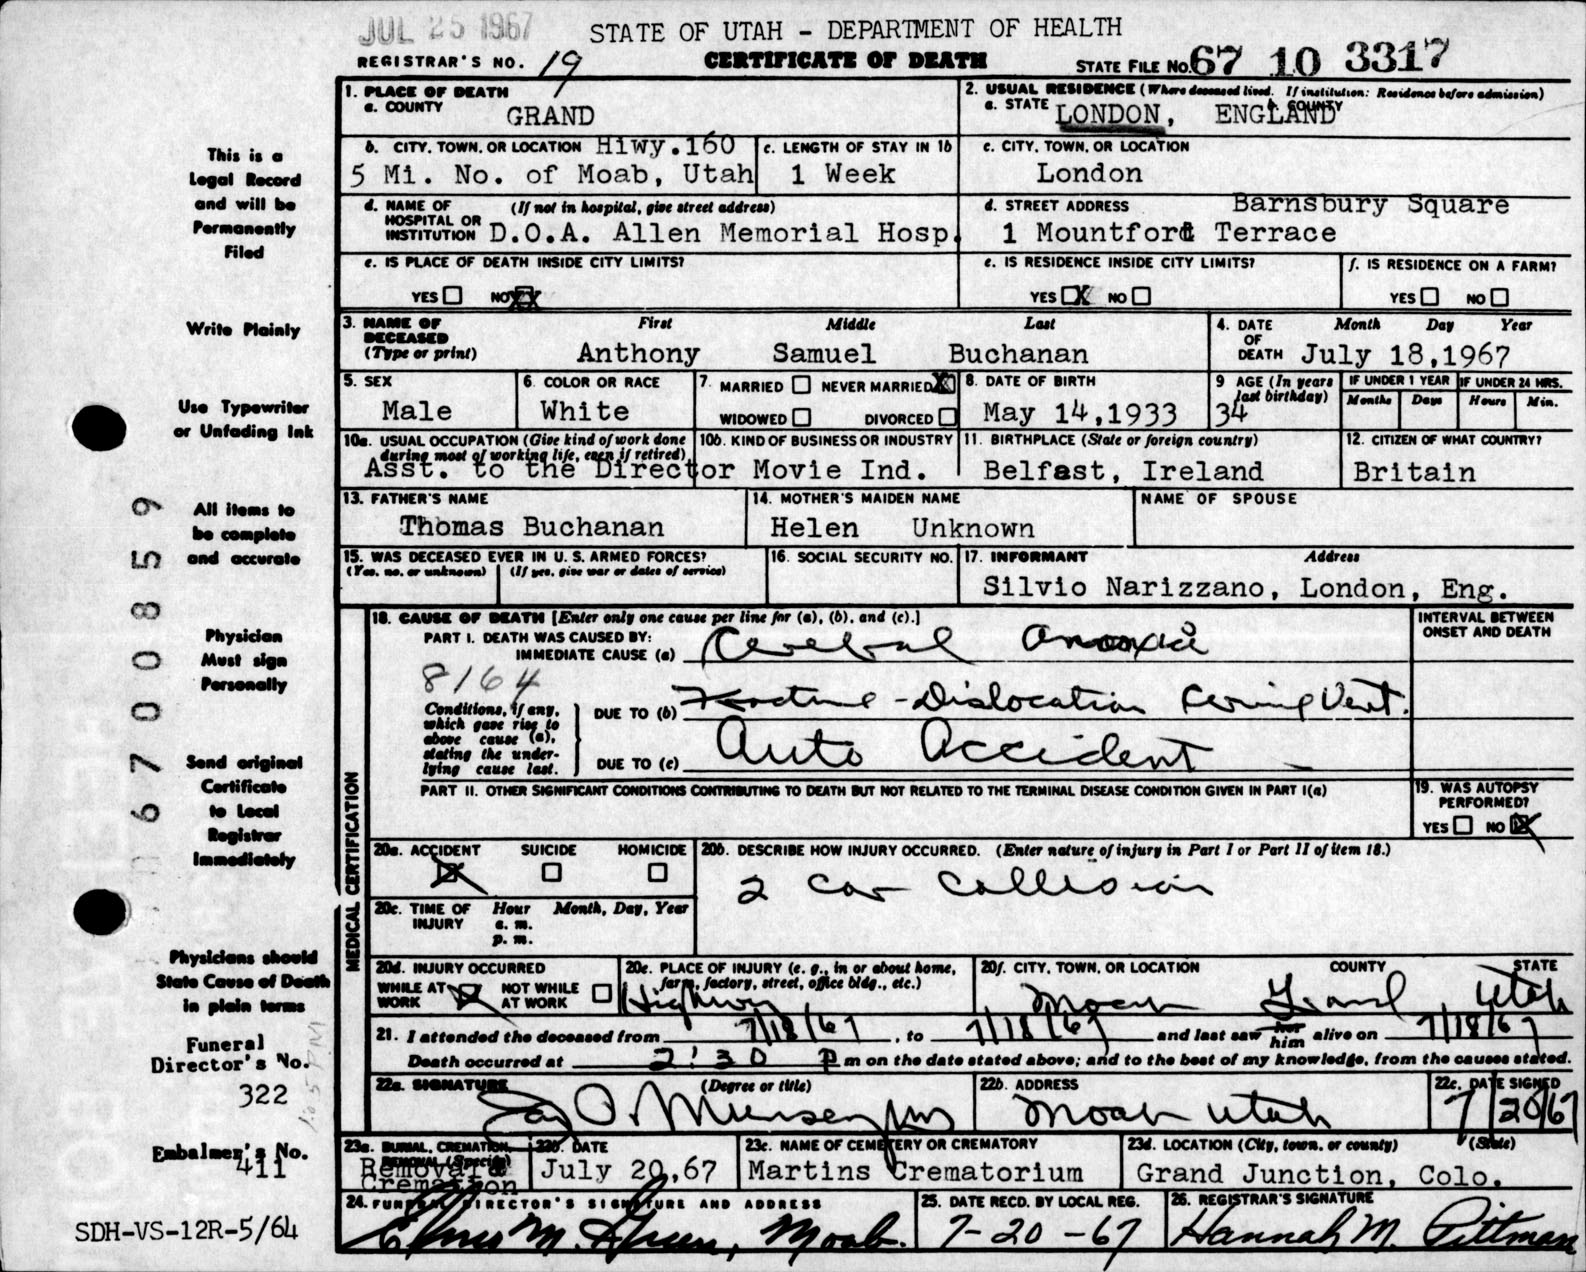 JUL 25 1967
STATE OF UTAH - DEPARTMENT OF HEALTH
REGISTRAR'S NO. 19
CERTIFICATE OF DEATH
STATE FILE NO. 67 10 3317
This is a
Legal Record
and will be
Permanently
Filed
Write Plainly
Use Typewriter
or Unfading Ink
All items to
be complete
and accurate
Physician
Must sign
Personally
Send original
Certificate
to Local
Registrar
Immediately
Physicians should
State Cause of Death
in plain terms
Funeral
Director's No.
322
Embalmer's No.
411
SDH-VS-12R-5/64
67 0 0 8 5 9
1. PLACE OF DEATH
a. COUNTY
GRAND
2. USUAL RESIDENCE (Where deceased lived. If institution: Residence before admission)
a. STATE LONDON, ENGLAND b. COUNTY
b. CITY, TOWN, OR LOCATION Hiwy. 160
5 Mi. No. of Moab, Utah
c. LENGTH OF STAY IN 1b
1 Week
c. CITY, TOWN, OR LOCATION
London
d. NAME OF HOSPITAL OR INSTITUTION (If not in hospital, give street address)
D.O.A. Allen Memorial Hosp.
d. STREET ADDRESS Barnsbury Square
1 Mountford Terrace
e. IS PLACE OF DEATH INSIDE CITY LIMITS?
YES NO XX
e. IS RESIDENCE INSIDE CITY LIMITS?
YES X NO
f. IS RESIDENCE ON A FARM?
YES NO
3. NAME OF DECEASED (Type or print)
First Middle Last
Anthony Samuel Buchanan
4. DATE OF DEATH Month Day Year
July 18,1967
5. SEX
Male
6. COLOR OR RACE
White
7. MARRIED NEVER MARRIED X
WIDOWED DIVORCED
8. DATE OF BIRTH
May 14,1933
9 AGE (In years last birthday)
34
IF UNDER 1 YEAR
Months Days
IF UNDER 24 HRS.
Hours Min.
10a. USUAL OCCUPATION (Give kind of work done during most of working life, even if retired)
Asst. to the Director
10b. KIND OF BUSINESS OR INDUSTRY
Movie Ind.
11. BIRTHPLACE (State or foreign country)
Belfast, Ireland
12. CITIZEN OF WHAT COUNTRY?
Britain
13. FATHER'S NAME
Thomas Buchanan
14. MOTHER'S MAIDEN NAME
Helen Unknown
NAME OF SPOUSE
15. WAS DECEASED EVER IN U. S. ARMED FORCES?
(Yes, no, or unknown) (If yes, give war or dates of service)
16. SOCIAL SECURITY NO.
17. INFORMANT Address
Silvio Narizzano, London, Eng.
MEDICAL CERTIFICATION
18. CAUSE OF DEATH [Enter only one cause per line for (a), (b), and (c).]
INTERVAL BETWEEN ONSET AND DEATH
PART I. DEATH WAS CAUSED BY:
IMMEDIATE CAUSE (a) Cerebral anoxia
8164
Conditions, if any, which gave rise to above cause (a), stating the underlying cause last.
DUE TO (b) Fracture-Dislocation Cervical Vert.
DUE TO (c) Auto Accident
PART II. OTHER SIGNIFICANT CONDITIONS CONTRIBUTING TO DEATH BUT NOT RELATED TO THE TERMINAL DISEASE CONDITION GIVEN IN PART I(a)
19. WAS AUTOPSY PERFORMED?
YES NO X
20a. ACCIDENT SUICIDE HOMICIDE
X
20b. DESCRIBE HOW INJURY OCCURRED. (Enter nature of injury in Part I or Part II of item 18.)
2 car collision
20c. TIME OF INJURY Hour Month, Day, Year
a. m.
p. m.
20d. INJURY OCCURRED
WHILE AT WORK X NOT WHILE AT WORK
20e. PLACE OF INJURY (e. g., in or about home, farm, factory, street, office bldg., etc.)
Highway
20f. CITY, TOWN, OR LOCATION COUNTY STATE
Moab Grand Utah
21. I attended the deceased from 7/18/67, to 7/18/67 and last saw her him alive on 7/18/67
Death occurred at 2:30 P m on the date stated above; and to the best of my knowledge, from the causes stated.
22a. SIGNATURE (Degree or title)
22b. ADDRESS
Moab Utah
22c. DATE SIGNED
7/20/67
23a. BURIAL, CREMATION, REMOVAL (Specify)
Removal &
Cremation
23b. DATE
July 20,67
23c. NAME OF CEMETERY OR CREMATORY
Martins Crematorium
23d. LOCATION (City, town, or county) (State)
Grand Junction, Colo.
24. FUNERAL DIRECTOR'S SIGNATURE AND ADDRESS
M. Moab.
25. DATE RECD. BY LOCAL REG.
7-20-67
26. REGISTRAR'S SIGNATURE
Hannah M. Pittman